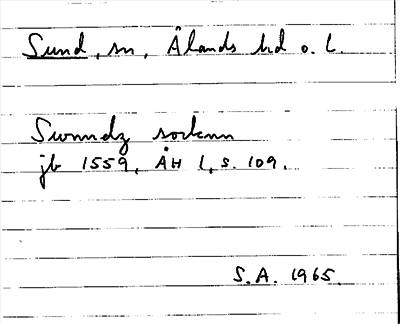 Sund, sn, Ålands hd o. l.
Swnndz sockenn
jb 1559, ÅH 1, s. 109.
S.A. 1965.